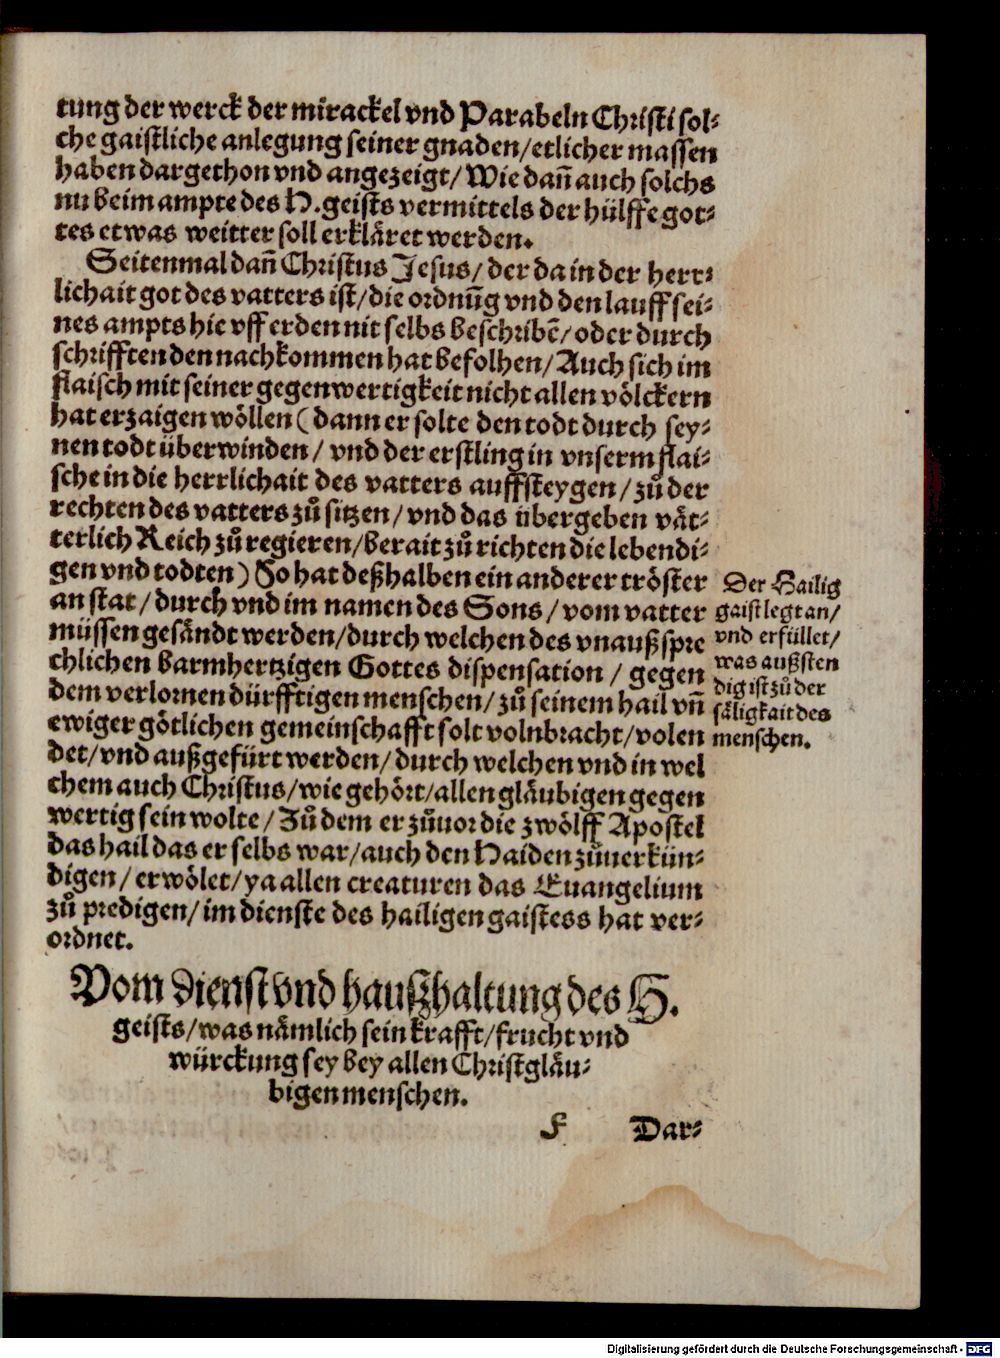 tung der werck der mirackel vnd Parabeln Christi sol⸗
che gaistliche anlegung seiner gnaden/etlicher massen
haben dargethon vnd angezeigt/Wie dañ auch solchs
nu beim ampte des H.geists vermittels der hülffe got⸗
tes etwas weitter soll erkläret werden.
Seitenmal dañ Christus Jesus/ der da in der herr⸗
lichait got des vatters ist/die ordnūg vnd den lauff sei⸗
nes ampts hie vff erden nit selbs beschribē/ oder durch
schrifften den nachkommen hat befolhen/Auch sich im
flaisch mit seiner gegenwertigkeit nicht allen völckern
hat erzaigen wöllen (dann er solte den todt durch sey⸗
nen todt überwinden/ vnd der erstling in vnserm flai⸗
sche in die herrlichait des vatters auffsteygen/ zů der
rechten des vatters zů sitzen/ vnd das übergeben vät⸗
terlich Reich zů regieren/berait zů richten die lebendi⸗
gen vnd todten) So hat deßhalben ein anderer tröster
an stat/ durch vnd im namen des Sons/ vom vatter
müssen gesändt werden/durch welchen des vnaußspre
chlichen barmhertzigen Gottes dispensation/ gegen
dem verlornen dürfftigen menschen/ zů seinem hail vñ
ewiger götlichen gemeinschafft solt volnbracht/volen
det/vnd außgefürt werden/durch welchen vnd in wel
chem auch Christus/wie gehört/allen gläubigen gegen
wertig sein wolte/Zů dem er zůuor die zwölff Apostel
das hail das er selbs war/auch den Haiden zůuerkün⸗
digen/ erwölet/ya allen creaturen das Euangelium
zů predigen/im dienste des hailigen gaistess hat ver⸗
ordnet.
Der Hailig
gaist legt an/
vnd erfüllet/
was außsten
dig ist zů der
säligkait des
menschen.
Vom dienst vnd haußhaltung des H.
geists/was nämlich sein krafft/frucht vnd
würckung sey bey allen Christgläu⸗
bigen menschen.
F Dar⸗
Digitalisierung gefördert durch die Deutsche Forschungsgemeinschaft - DFG